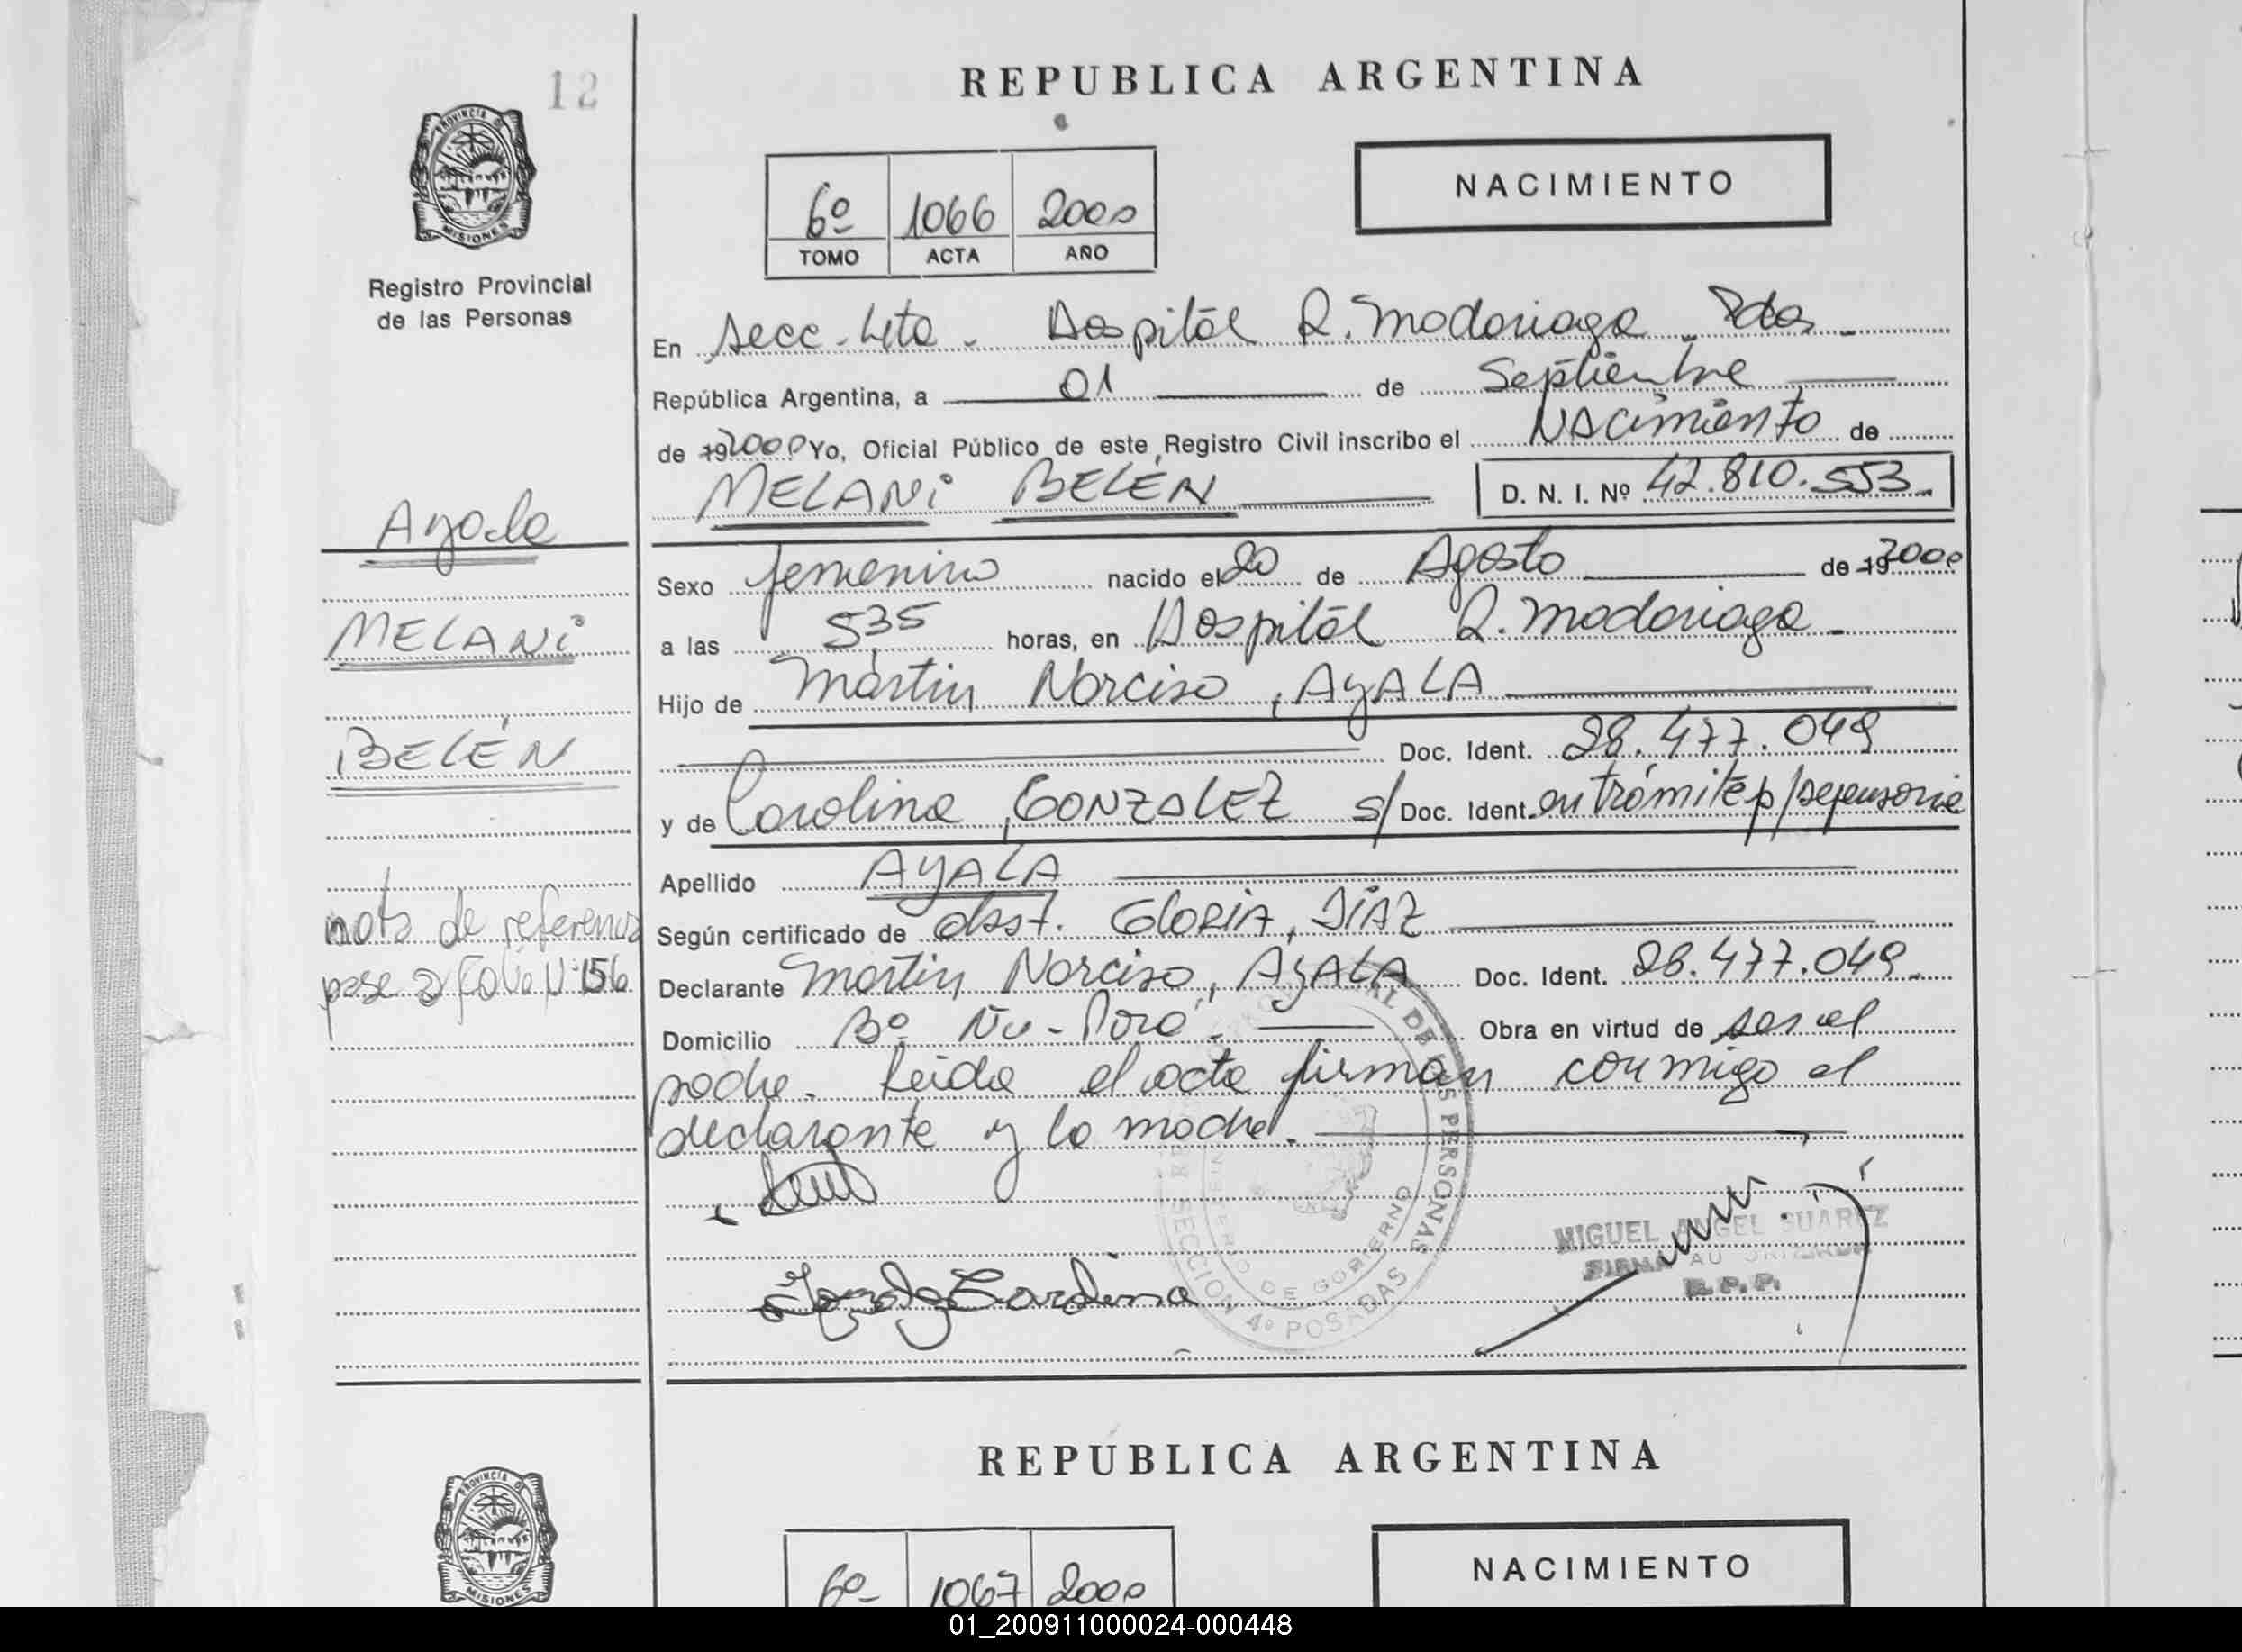 12
REPUBLICA ARGENTINA
PROVINCIA DE
MISIONES
Registro Provincial
de las Personas
NACIMIENTO
6º 1066 2000
TOMO ACTA AÑO
En Secc. 4ta. Hospital R. Madariaga - Pdas -
República Argentina, a 01 de Septiembre
de 19 2000 Yo, Oficial Público de este Registro Civil inscribo el Nacimiento de
MELANi BELÉN D. N. I. Nº 42.810.553
Sexo femenino nacido el 20 de Agosto de 19 2000
a las 5,35 horas, en Hospital R. Madariaga -
Hijo de Martin Narciso, AyALA
Doc. Ident. 28.477.049
y de Carolina, GONZALEZ s/ Doc. Ident. en trámite p/
Apellido AyALA
Según certificado de obst. GLORIA, DÍAZ
Declarante Martin Narciso, AyALA Doc. Ident. 28.477.049
Domicilio Bº Ñu-Porá Obra en virtud de ser el
padre. Leida el acta firman conmigo el
declarante y la madre.
Ayala
MELANi
BELÉN
nota de referencia
pase a Folio Nº 156
Gonzalez Carolina
MIGUEL ANGEL SUAREZ
FIRMA AUTORIZADA
R.P.P.
DE LAS PERSONAS
SECCION 4º POSADAS
DE GOBIERNO
REPUBLICA ARGENTINA
PROVINCIA DE
MISIONES
NACIMIENTO
6º 1067 2000
01_200911000024-000448